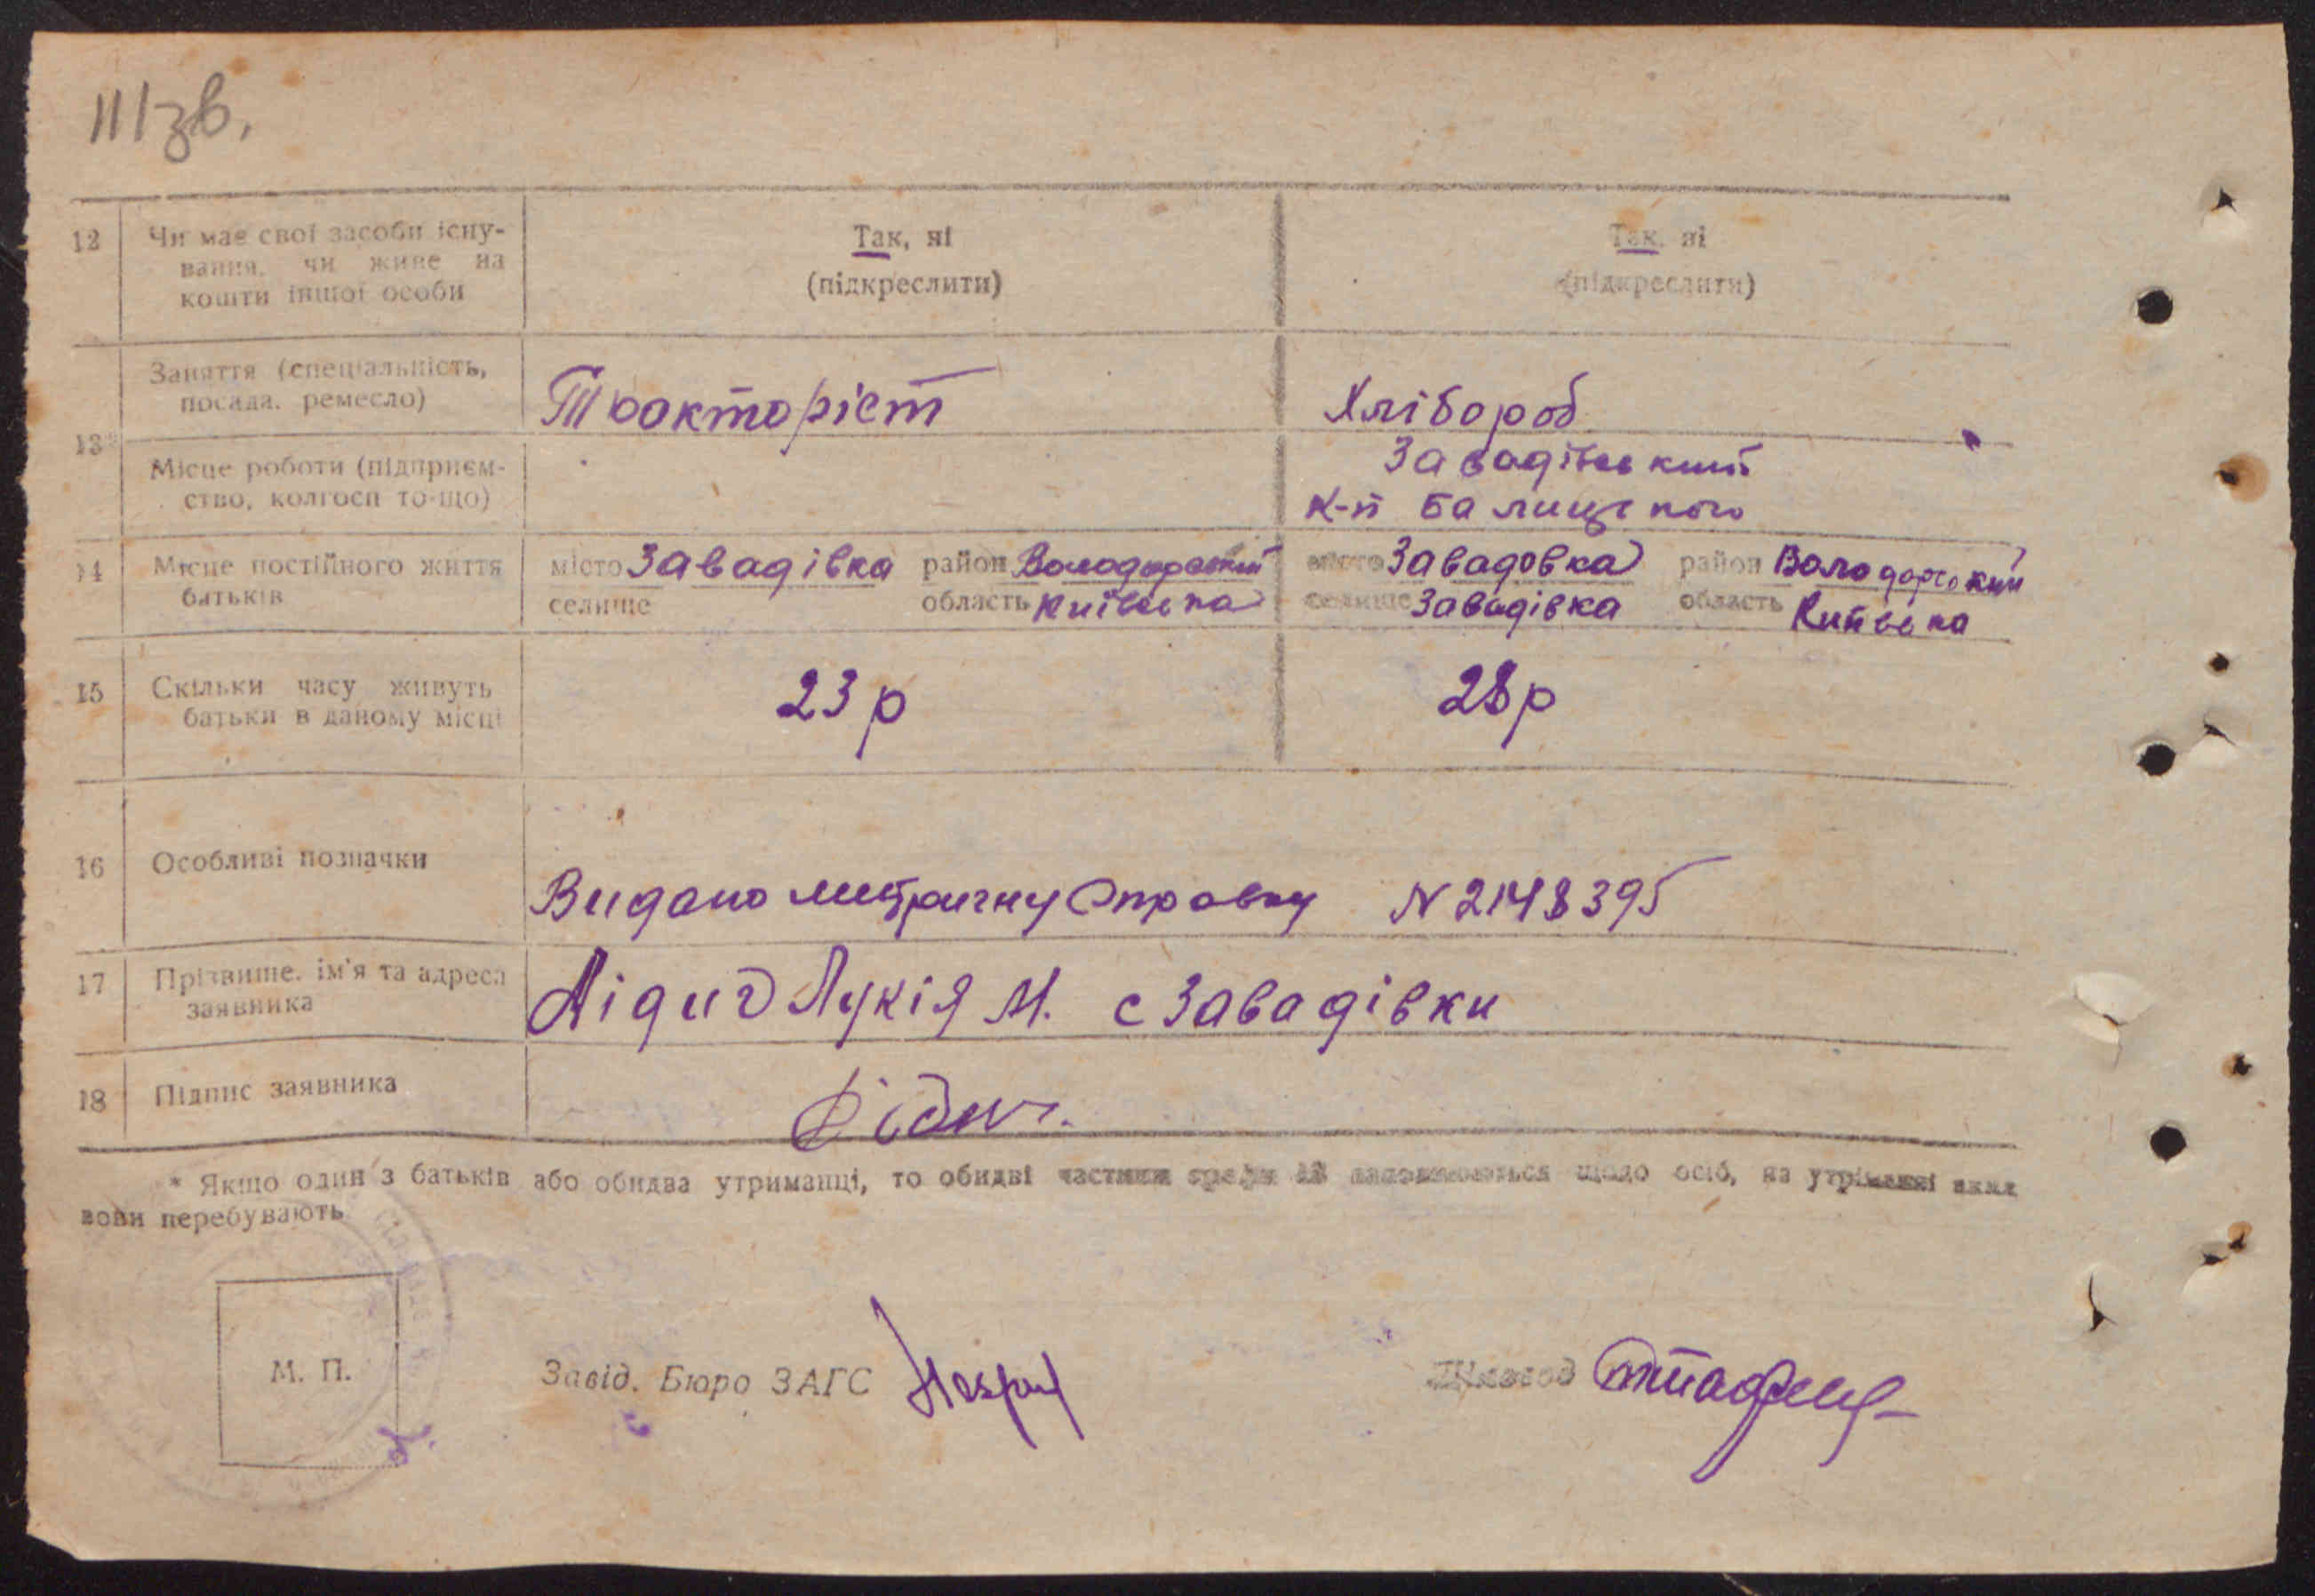 111зв.
12 Чи має свої засоби існу-
вання, чи живе на
кошти іншої особи
Так, ні
(підкреслити)
Так, ні
(підкреслити)
13*
Заняття (спеціальність,
посада, ремесло)
Тракторіст
Хлібороб
Місце роботи (підприєм-
ство, колгосп то-що)
Завадівський
к-п
14 Місце постійного життя
батьків
місто Завадівка район Володарський
селище область Київська
місто Завадовка район Володарський
селище Завадівка область Київська
15 Скільки часу живуть
батьки в даному місці
23 р
28 р
16 Особливі позначки
Видано метричну справку N 2148395
17 Прізвище, ім'я та адреса
заявника
Дідич Лукія М. с Завадівки
18 Підпис заявника
Дідич.
* Якщо один з батьків або обидва утриманці, то обидві частини графи 13 заповнюються щодо осіб, на утріманні яких
вони перебувають
М. П.
Завід. Бюро ЗАГС